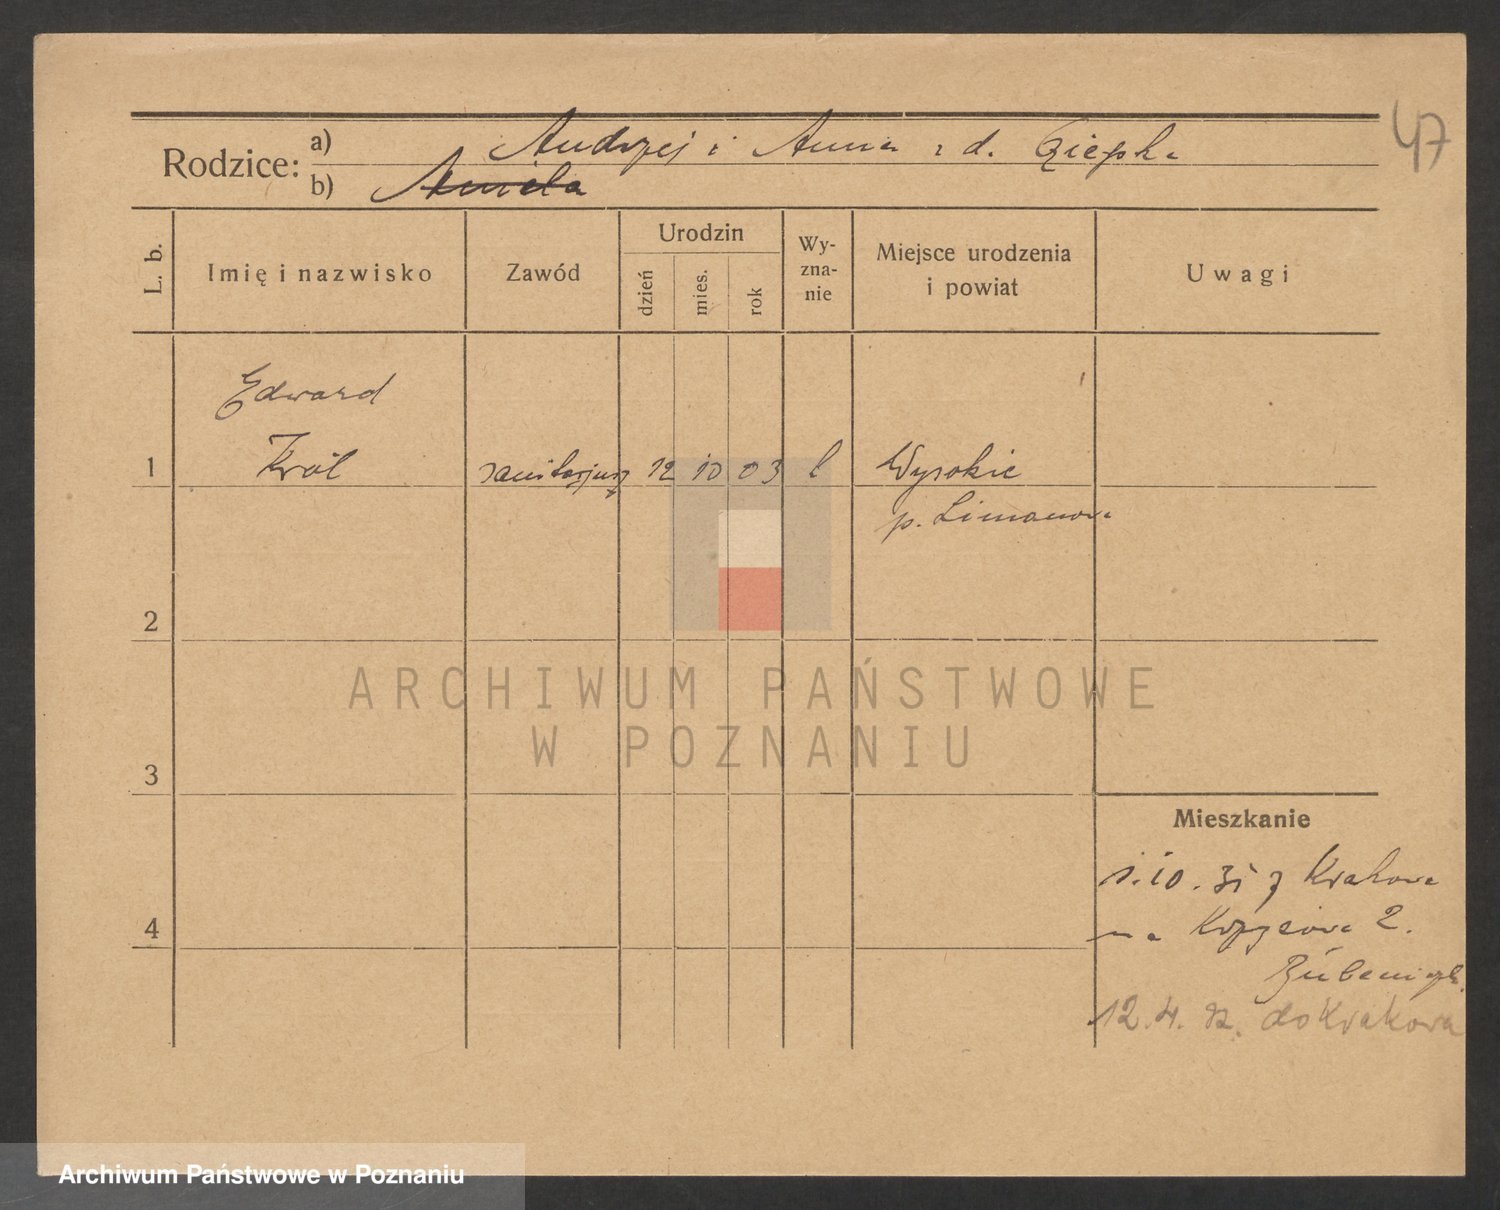 47
Rodzice:
a) Andrzej i Anna z d.
b) Aniela
L. b.
Imię i nazwisko
Zawód
Urodzin
dzień
mies.
rok
Wy-
zna-
nie
Miejsce urodzenia
i powiat
Uwagi
Edward
1 Król sanitarjusz 12 10 03 Wysokie
p. Limanowa
2
ARCHIWUM PAŃSTWOWE
W POZNANIU
3
Mieszkanie
1.10.31 z Krakowa
4
na 2.
12.4.32. do Krakowa
Archiwum Państwowe w Poznaniu